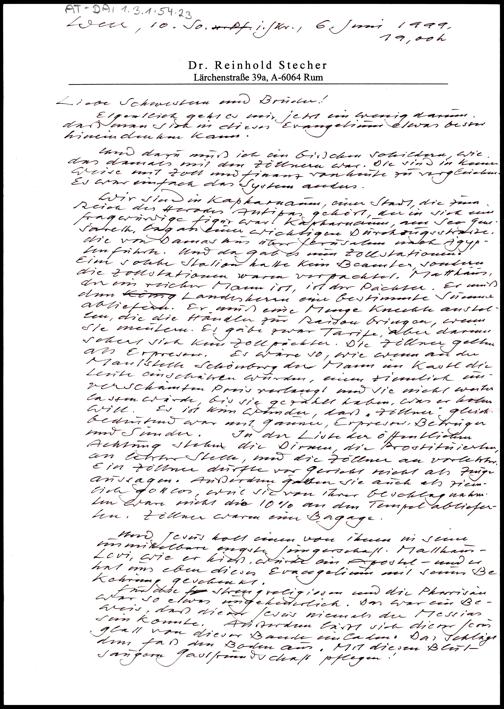 AT-DAI 1.3.1.54.23
10. So. i. Jkr., 6. Juni 1999
19,00h
Dr. Reinhold Stecher
Lärchenstraße 39a, A-6064 Rum
Liebe Schwestern und Brüder!
Eigentlich geht es mir jetzt ein wenig darum,
daß man sich in dieses Evangelium etwas besser
hineindenken kann.
Und dazu muß ich ein bißchen schildern, wie
das damals mit den Zöllnern war. Die sind in keiner
Weise mit Zoll und Finanz von heute zu vergleichen.
Es war einfach das System anders.
Wir sind in Kapharnaum, einer Stadt, die zum
Reich des Herodes Antipas gehört, der in sich eine
fragwürdige Figur war. Kapharnaum, am See Gene-
sareth, lag an einer wichtigen Durchzugsstraße,
die von Damaskus über Jerusalem nach Ägyp-
ten führte. Und da gab es eine Zollstation.
Eine solche Station hatte kein Beamter, sondern
die Zollstationen waren verpachtet. Matthäus,
der ein reicher Mann ist, ist der Pächter. Er muß
dem Landesherrn eine bestimmte Summe
abliefern. Er muß eine Menge Knechte anstel-
len, die die Händler zur Raison bringen, wenn
sie meutern. Es gäbe zwar Tarife, aber darum
schert sich kein Zollpächter. Die Zöllner gelten
als Erpresser. Es wäre so, wie wenn an der
Mautstelle Schönberg der Mann im Kastl die
Leute einschätzen würde, einen ziemlich un-
verschämten Preis verlangt und sie nicht weiter
lassen würde, bis sie gezahlt haben, was er haben
will. Es ist kein Wunder, daß "Zöllner" gleich-
bedeutend war mit Gauner, Erpresser, Betrüger
und Sünder. In der Liste der öffentlichen
Achtung stehen die Dirnen, die Prostituierten,
an letzter Stelle, und die Zöllner an vorletzter.
Ein Zöllner durfte vor Gericht nicht als Zeuge
aussagen. Außerdem galten sie auch als ziem-
lich gottlos, weil sie von ihrer beschlagnahm-
ten Ware nicht die 10% an den Tempel abliefer-
ten. Zöllner waren eine Bagage.
Und Jesus holt einen von ihnen in seine
unmittelbare engste Jüngerschaft. Matthäus-
Levi, wie er hieß, wurde ein Apostel - und er
hat uns eben dieses Evangelium mit seiner Be-
kehrung geschenkt.
Für die strengreligiösen und die Pharisäer
war so etwas ungeheuerlich. Das war ein Be-
weis, daß dieser Jesus niemals der Messias
sein konnte. Außerdem läßt sich dieser Jesus
glatt von dieser Bande einladen. Das schlägt
dem Faß den Boden aus. Mit diesen Blut-
saugern Gastfreundschaft pflegen!